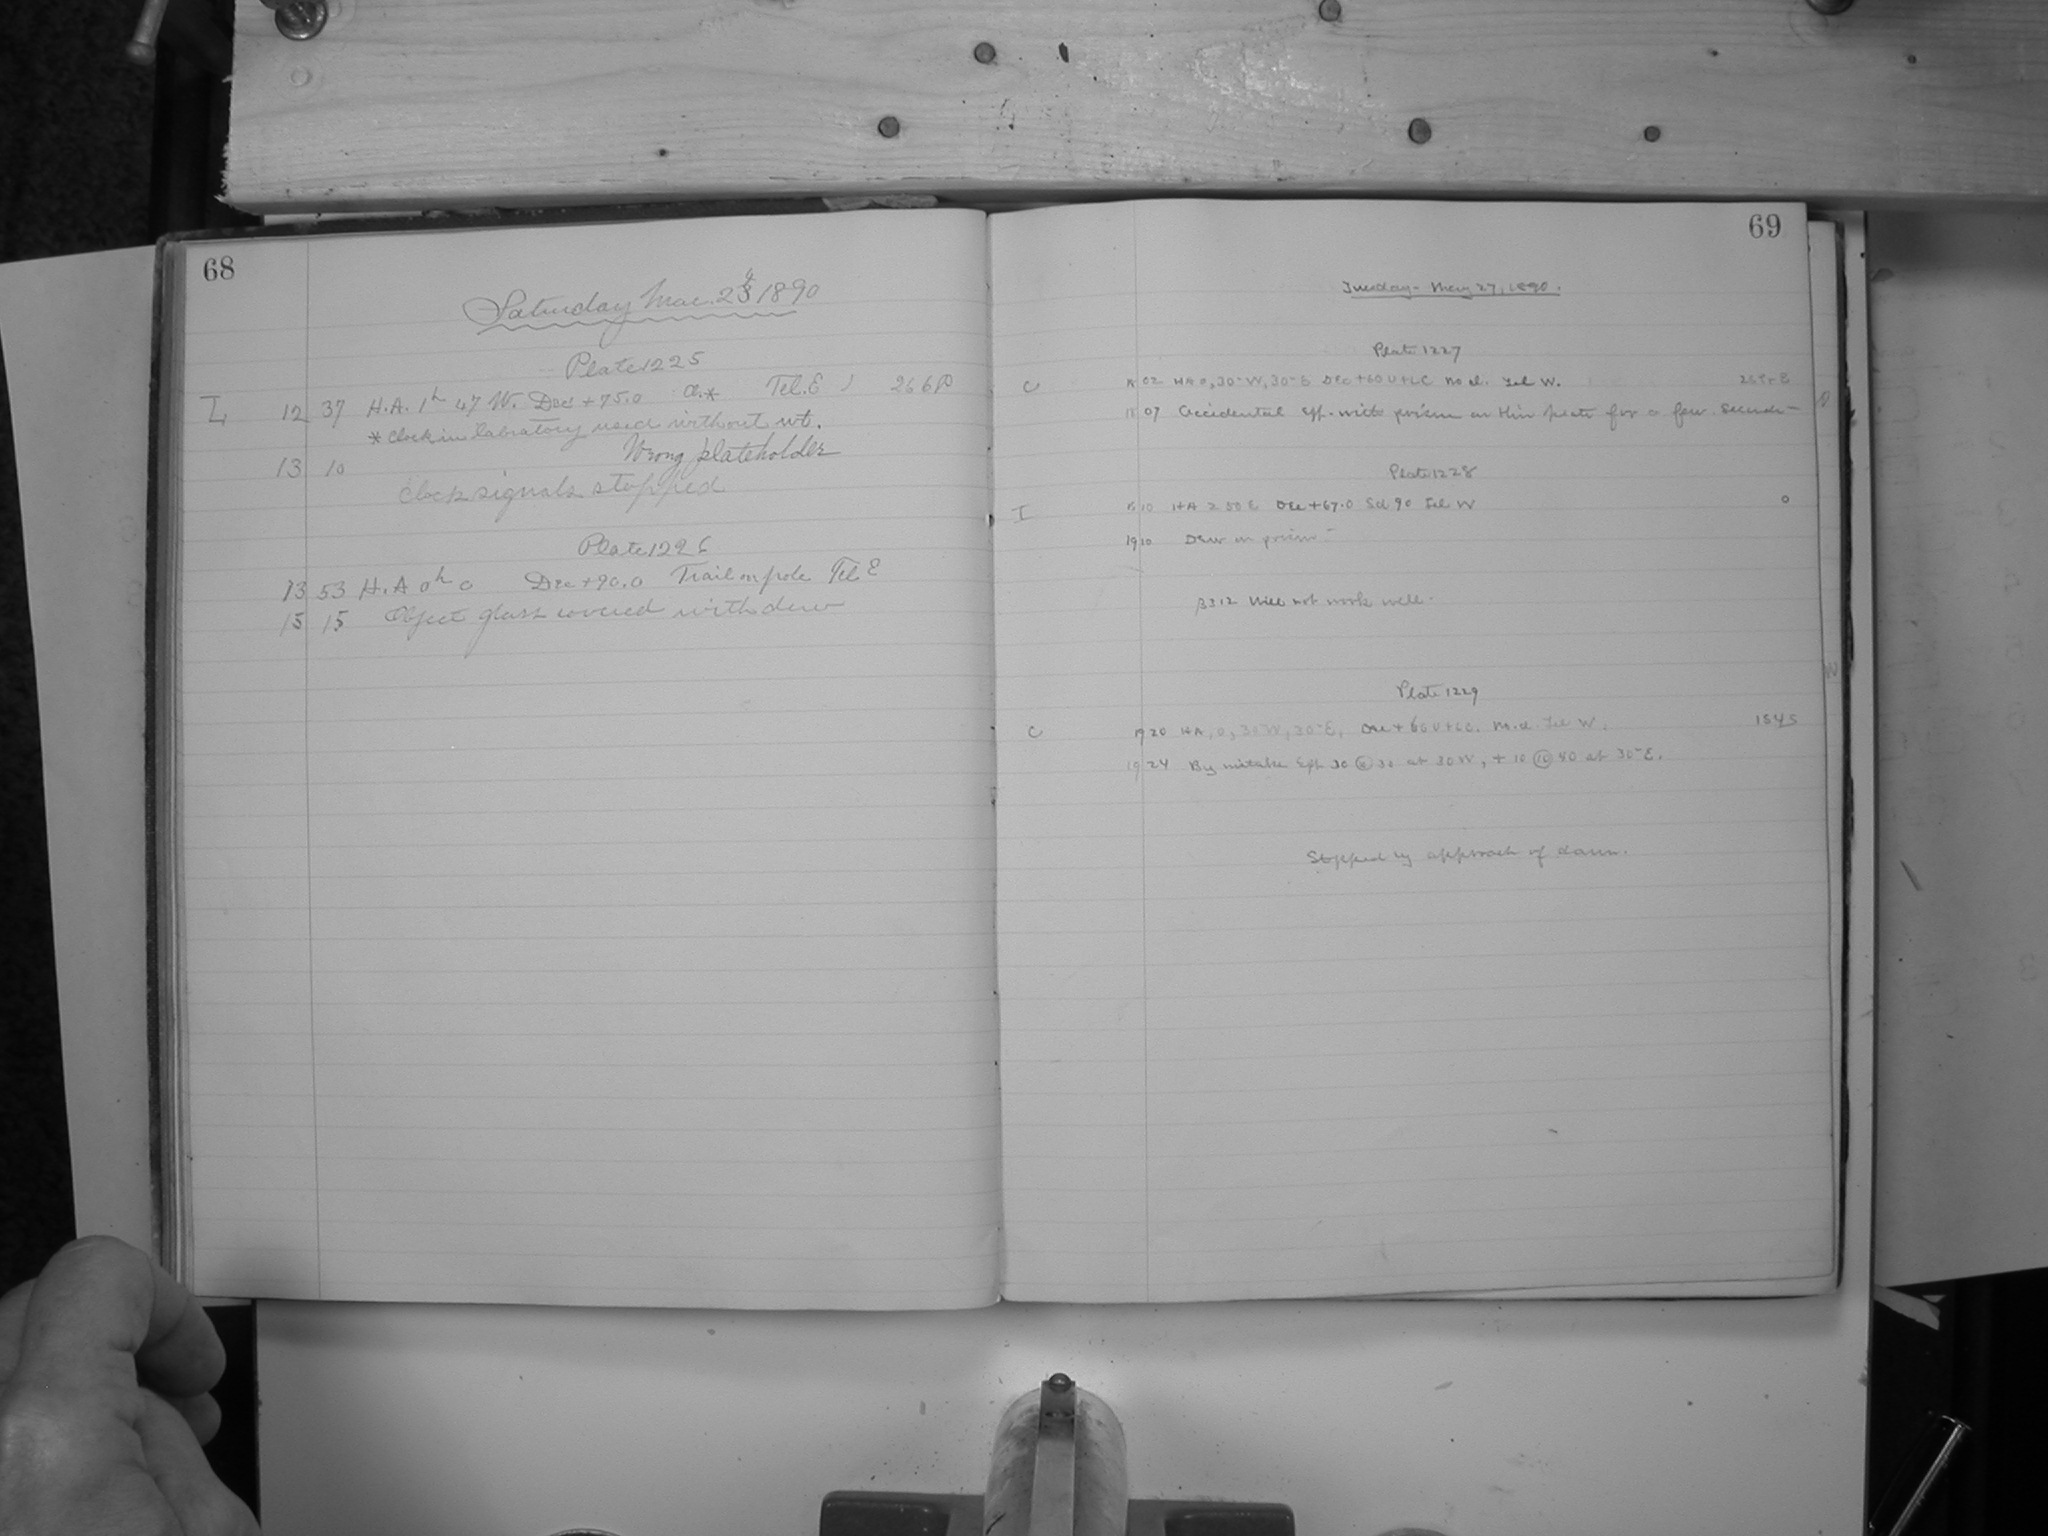 68
Saturday Mar. 2 1890
Plate 1225
I 12 37 H.A. 1h 47 W. Dec +75.0 Cl.* Tel. E 266P
* Clock in laboratory used without wt.
13 10 Wrong plateholder
Clock signals stopped
Plate 1226
13 53 H.A 0h 0 Dec +90.0 Trail on pole Tel E
15 15 Object glass covered with dew
69
Tuesday - May 27, 1890.
Plate 1227
C 02 HA 0, 30 W, 30 E Dec +60 U+LC no cl. Tel W.
18 07 Accidental Exp. with prism on this plate for a few seconds
Plate 1228
I 10 HA 2 50 E Dec +67.0 Sid 90 Tel W 0
19 10 Dew on prism
B312 Will not work well.
Plate 1229
C 19 20 HA, 0, 30 W, 30 E, Dec + 60 U+LC. no cl. Tel W. 154S
19 24 By mistake Exp 30 at 30 W, + 10 at 30 E.
Stopped by approach of dawn.